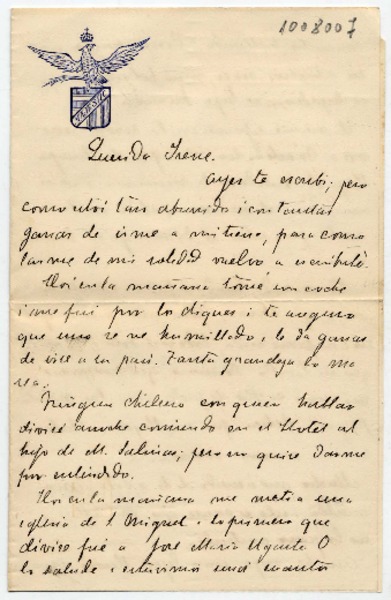 1008007
Querida Irene.
Ayer te escribí; pero
como estoi tan aburrido i con tantas
ganas de irme a mi tierra, para conso
larme de mi soledad vuelvo a escribirte.
Hoi en la mañana tomé un coche
i me fuí por los diques i te aseguro
que uno se ve humillado, i le da ganas
de irse a su pais. Tanta grandeza lo
Ningun chileno con quien hablar
divisé anoche comiendo en el Hotel al
hijo de M. Salinas; pero no quise darme
por entendido.
Hoi en la mañana me metia una
iglesia de S. Miguel i lo primero que
divisé fué a José Maria Ugarte O
lo saludé i estuvimos unos cuantos